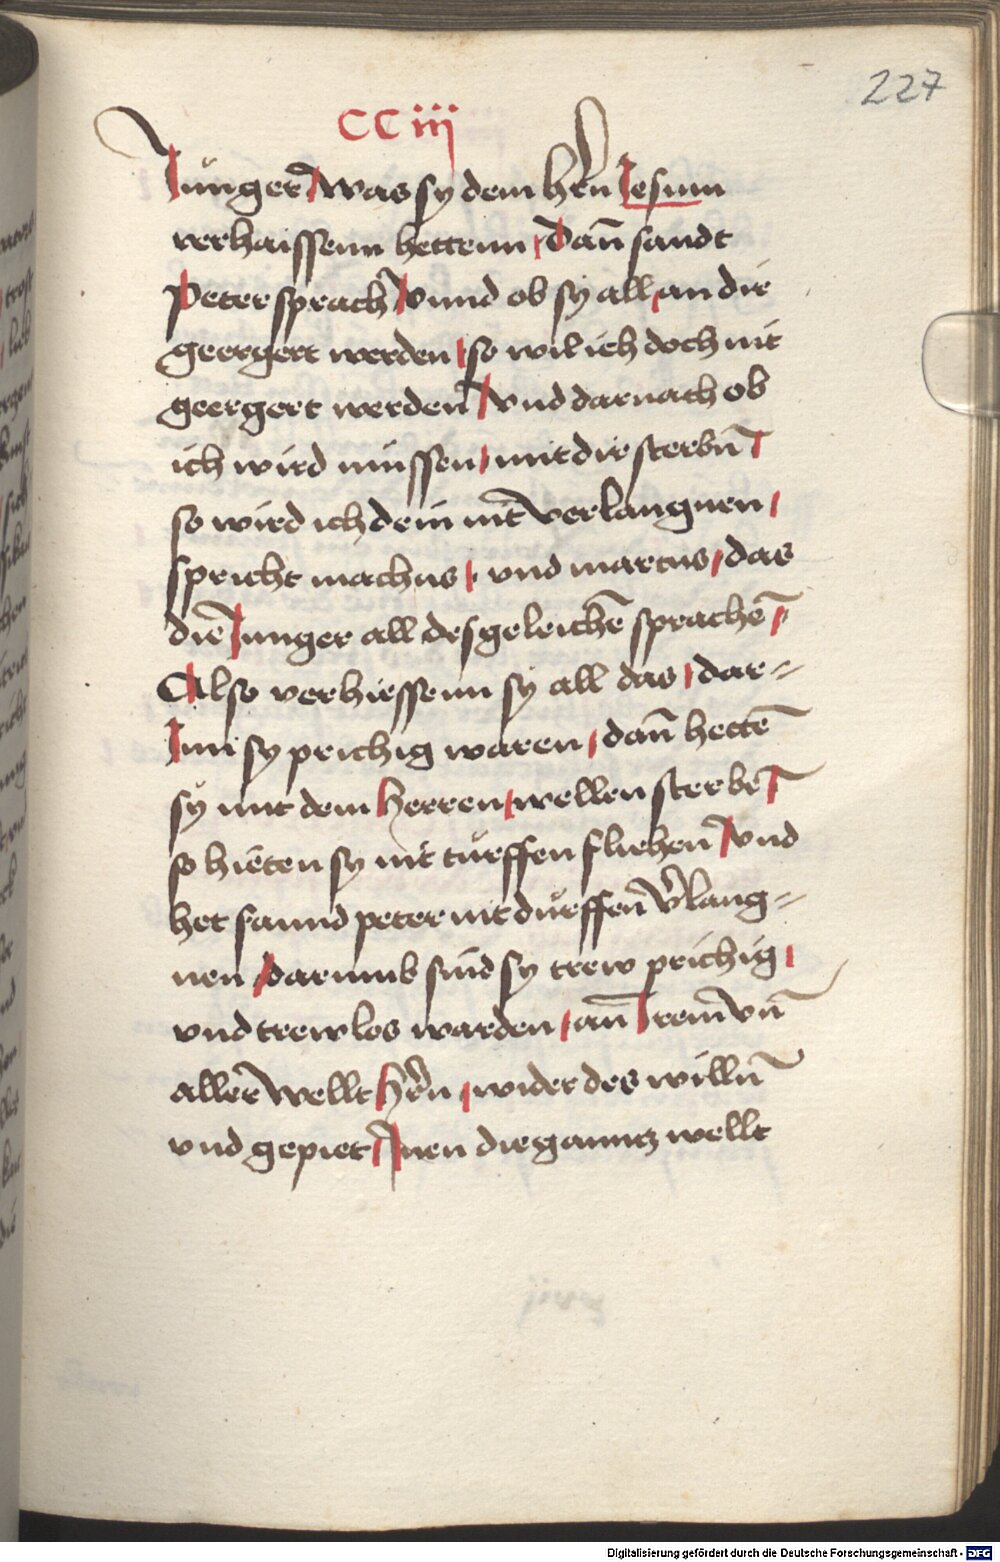 227
CCiij
Jünger was sy dem hrn̄ Jesum
verhaissenn hettenn / dan̄ sandt
Peter sprach̄ / vnnd ob sy all / an dir
geergert werden / so wil ich doch nit
geergert werden̄ / vnd darnach ob
ich wird müssen / mit dir sterbn̄ /
so wird ich dein nit̄ verlangnen /
spricht matheus / vnd marcus / das
die Junger all desgeleichen̄ sprachen̄ /
Also verhiessenn sy all das / dar=
Jnn sy prichig waren / dan̄ hetten̄
sy mit dem herren / wellen sterben̄ /
so hieten sy nit türffen fliehen̄ / vnd
het sannd peter nit dürffen̄ v̄lang=
nen / darumb sind sy trew prichig /
vnd trewlos warden / an̄ Jrem̄ vn̄
aller̄ wellt hr̄n / wider des willn̄
vnd gepiet / Jnen die ganntz wellt
Digitalisierung gefördert durch die Deutsche Forschungsgemeinschaft - DFG